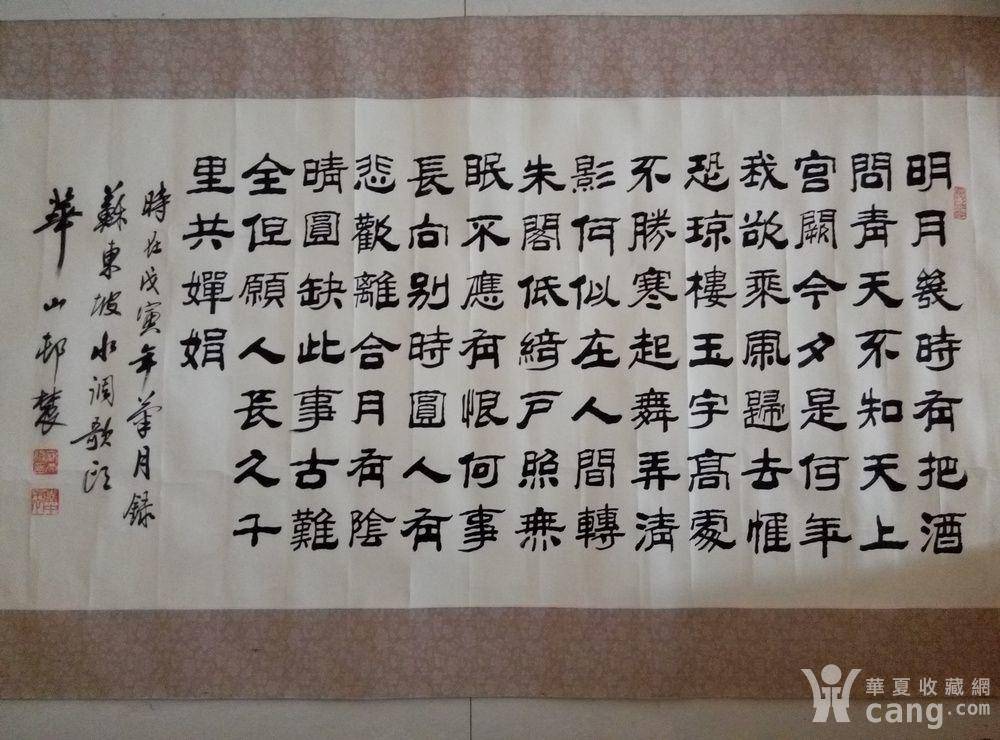 明月幾時有把酒
問青天不知天上
宮闕今夕是何年
我欲乘風歸去惟
恐琼樓玉宇高處
不勝寒起舞弄清
影何似在人間轉
朱閣低綺戶照無
眠不應有恨何事
長向别時圓人有
悲歡離合月有陰
晴圓缺此事古難
全但願人長久千
里共嬋娟
時在戊寅年菊月録
蘇東坡水调歌頭
華山邨農
華夏收藏網
cang.com